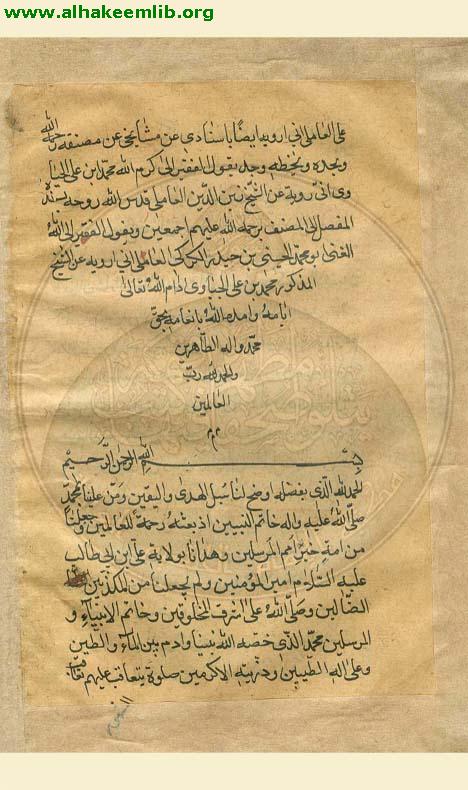 www.alhakeemlib.org
على العاملي اني ارويه ايضا باسنادي عن مشايخي عن مصنفه رحمه الله
وبخطه وجد يقول الفقير الى كرم الله محمد ابن علي
اني رويه عن الشيخ زين الدين العاملي قدس الله روحه
المفصل الى المصنف يرحمة الله عليهم اجمعين ويقول الفقير الى الله
الغنى ابو محمد الحسيني بن حيدر الكركى العاملي اني ارويه عن الشيخ
المذكور محمد بن علي ادام الله تعالى
ايامه وامده الله بانعامه بحق
محمد واله الطاهرين
والحمد لله رب
العالمين
م م
بسم الله الرحمن الرحيم
الحمد لله الذي بفضله اوضح لنا سبل الهدى واليقين ومن علينا بمحمد
صلى الله عليه واله خاتم النبيين اذ بعثه رحمة للعالمين وجعلنا
من امته خير امم المرسلين وهدانا بولاية علي ابن ابي طالب
عليه السلام امير المؤمنين ولم يجعلنا من المكذبين
الضالين وصلى الله على اشرف المخلوقين وخاتم الانبياء و
المرسلين محمد الذي خصه الله نبيا وادم بين الماء والطين
وعلى اله الطيبين وذريته الاكرمين صلوة يتعاقب عليهم